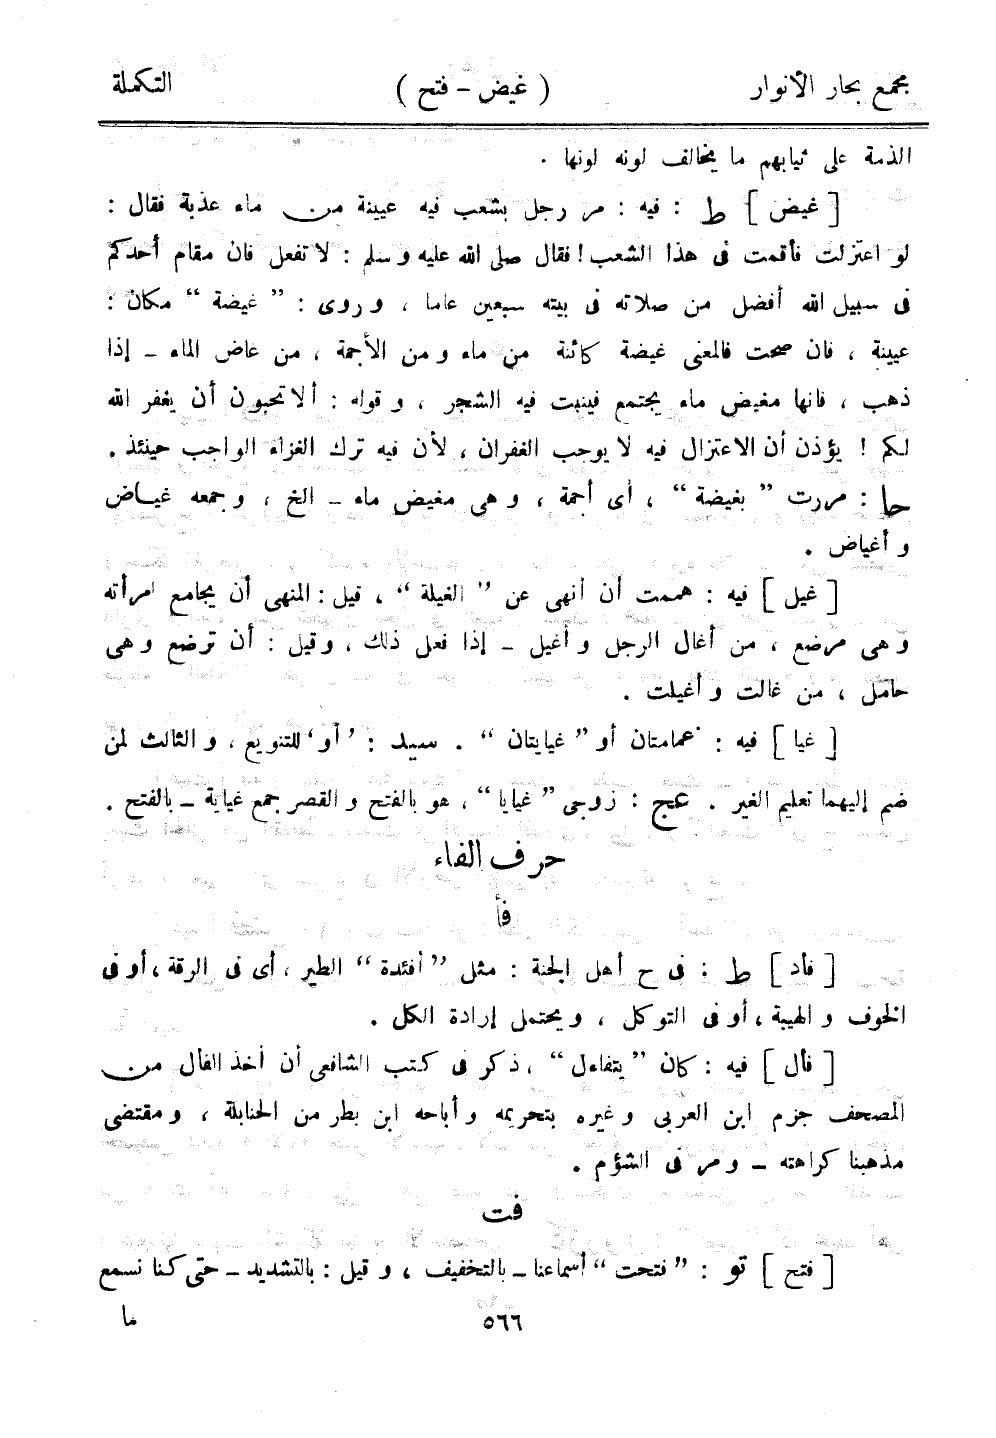 مجمع بحار الأنوار ( غيض - فتح ) التكملة
الذمة على ثيابهم ما يخالف لونه لونها .
[ غيض ] ط : فيه : مر رجل بشعب فيه عيينة من ماء عذبة فقال :
لو اعتزلت فأقمت فى هذا الشعب ! فقال صلى الله عليه و سلم : لا تفعل فان مقام أحدكم
فى سبيل الله أفضل من صلاته فى بيته سبعين عاما ، و روى : ” غيضة “ مكان :
عيينة ، فان صحت فالمعنى غيضة كائنة من ماء و من الأجمة ، من غاض الماء - إذا
ذهب ، فانها مغيض ماء يجتمع فينبت فيه الشجر ، و قوله : ألا تحبون أن يغفر الله
لكم ! يؤذن أن الاعتزال فيه لا يوجب الغفران ، لأن فيه ترك الغزاء الواجب حينئذ .
حا : مررت ” بغيضة “ ، أى أجمة ، و هى مغيض ماء - الخ ، و جمعه غياض
و أغياض .
[ غيل ] فيه : هممت أن أنهى عن ” الغيلة “ ، قيل : المنهى أن يجامع امرأته
و هى مرضع ، من أغال الرجل و أغيل - إذا فعل ذلك ، و قيل : أن ترضع و هى
حامل ، من غالت و أغيلت .
[ غيا ] فيه : غمامتان أو ” غيايتان “ . سيد : ’ أو ‘ للتنويع ، و الثالث لمن
ضم إليهما تعليم الغير . عج : زوجى ” غيايا “ ، هو بالفتح و القصر جمع غياية - بالفتح .
حرف الفاء
فأ
[ فأد ] ط : فى ح أهل الجنة : مثل ” أفئدة “ الطير ، أى فى الرقة ، أو فى
الخوف و الهيبة ، أو فى التوكل ، و يحتمل إرادة الكل .
[ فأل ] فيه : كان ” يتفاءل “ ، ذكر فى كتب الشافعى أن أخذ الفأل من
المصحف جزم ابن العربى و غيره بتحريمه و أباحه ابن بطر من الحنابلة ، و مقتضى
مذهبنا كراهته - و مر فى الشؤم .
فت
[ فتح ] تو : ” فتحت “ أسماعنا - بالتخفيف ، و قيل : بالتشديد - حتى كنا نسمع
٥٦٦ ما